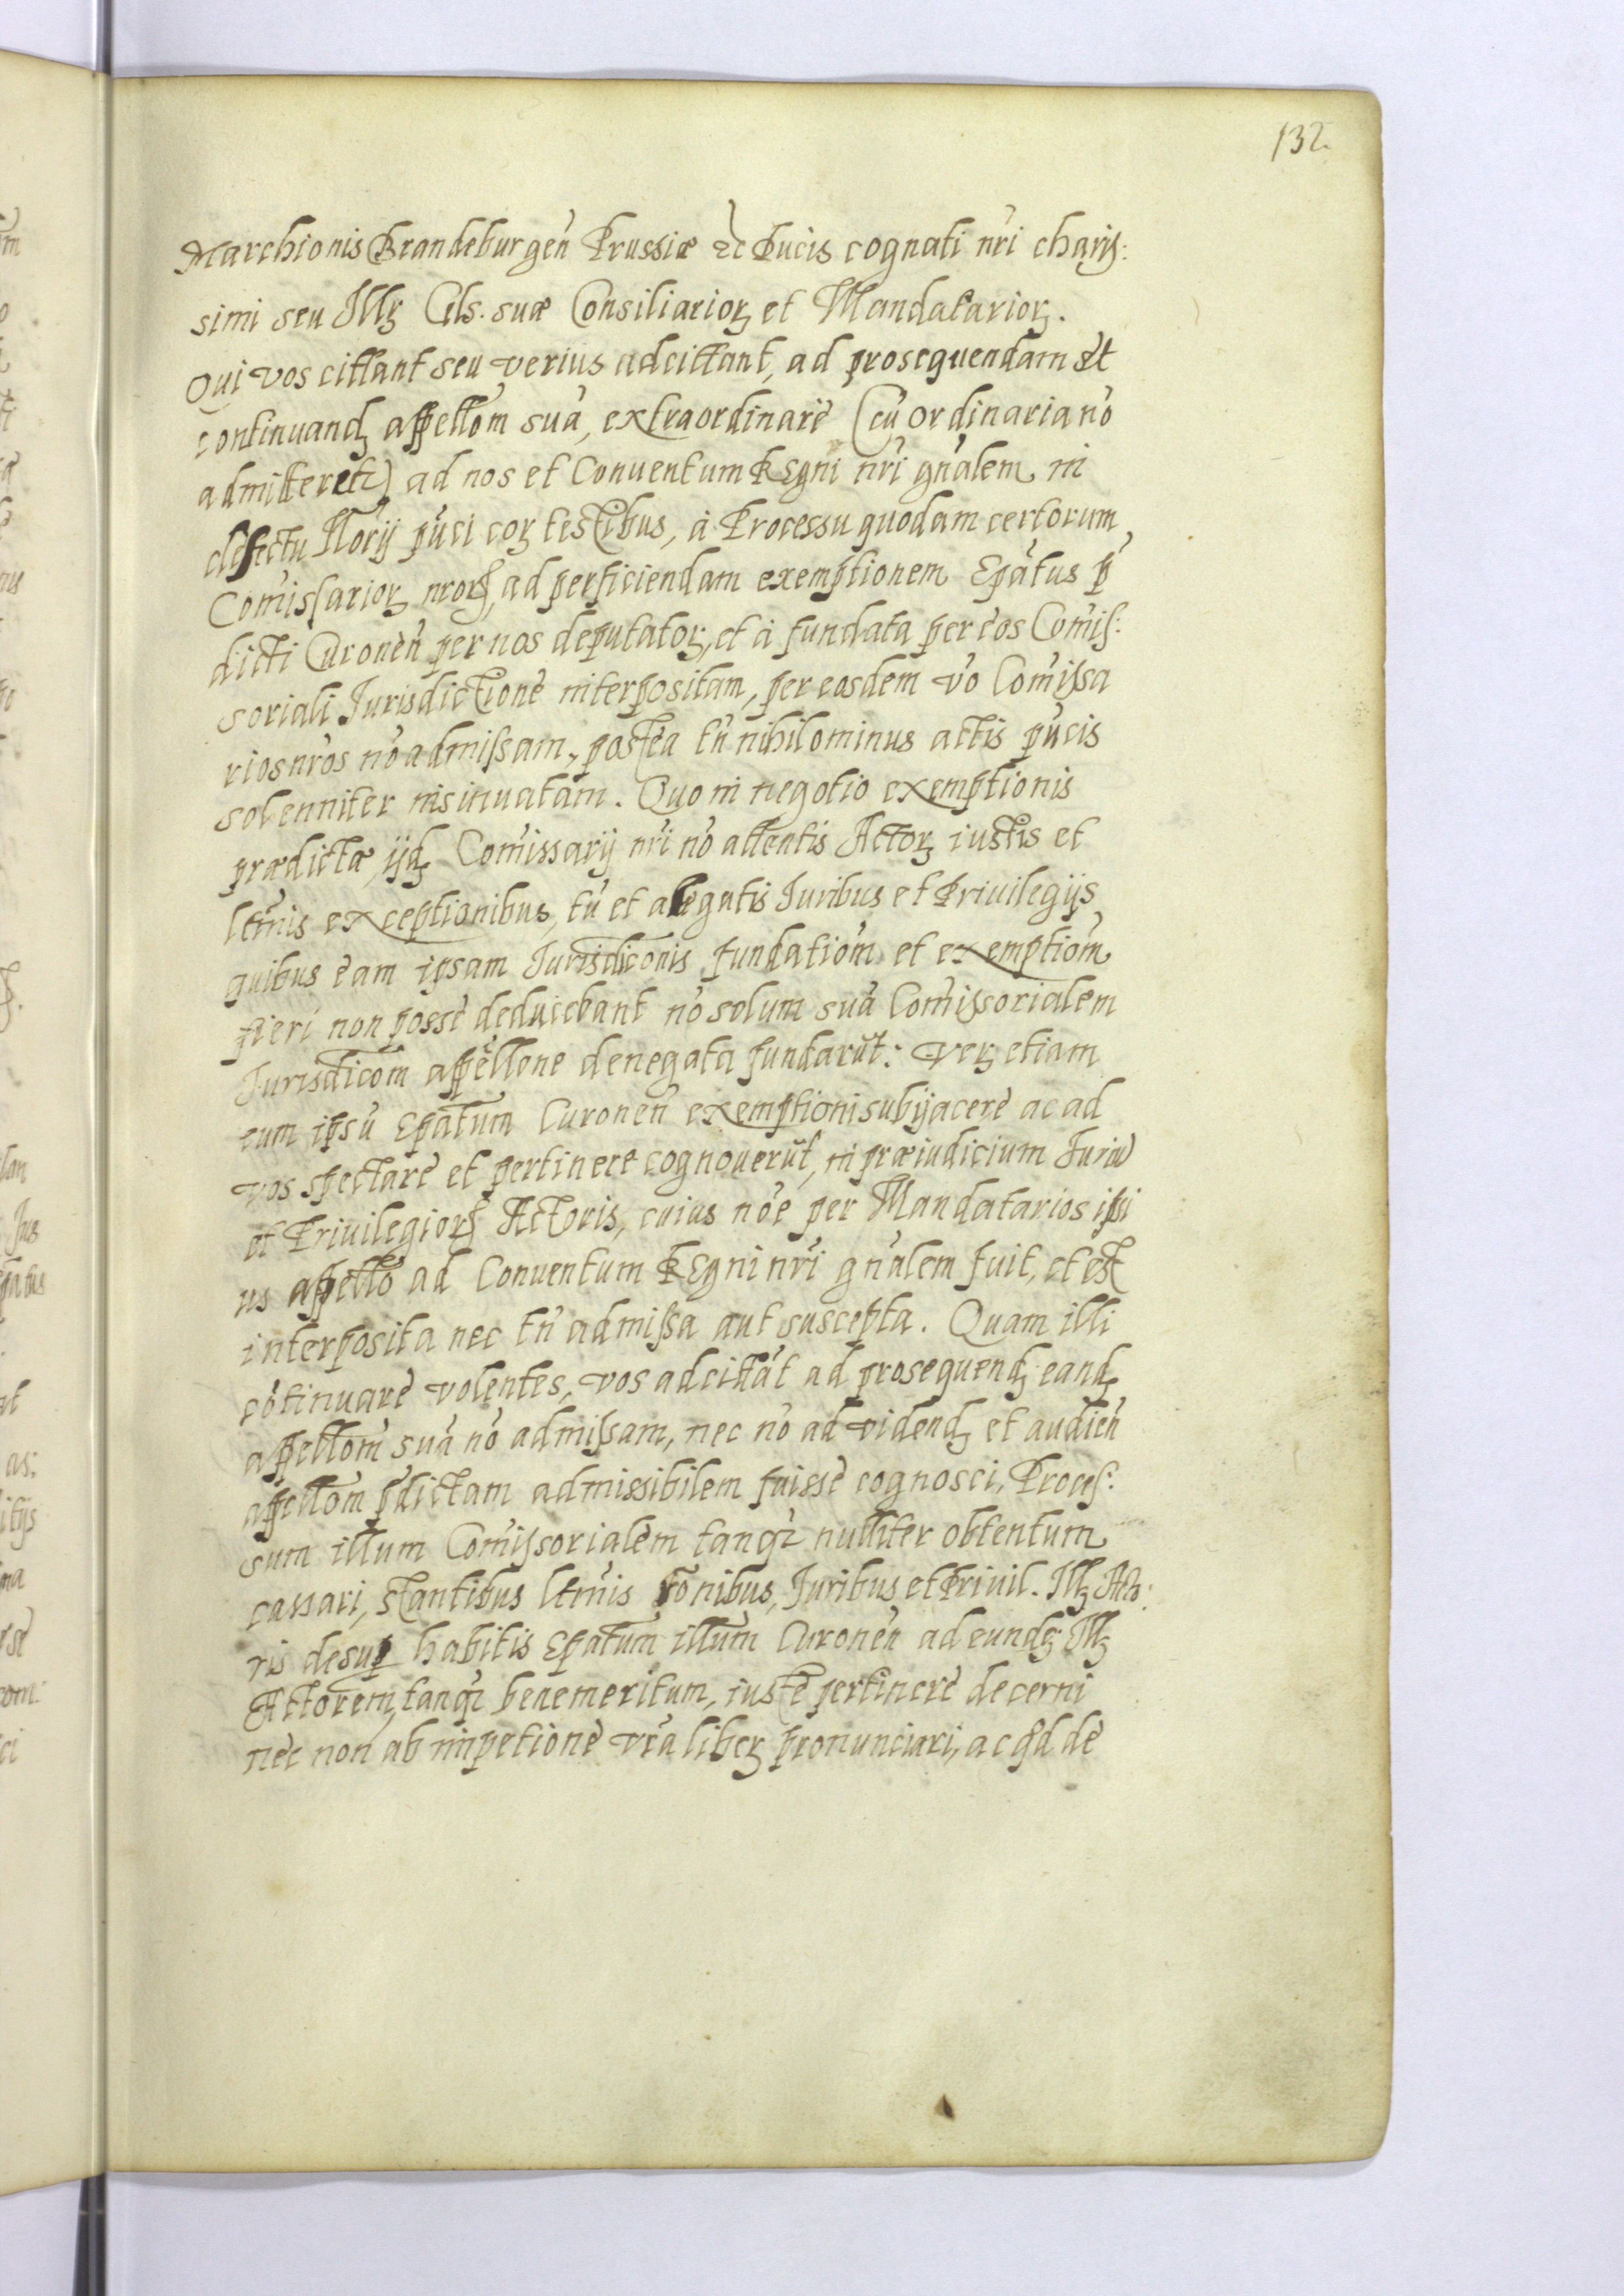 132.
Marchionis Brandeburgeń Prussiæ &c Ducis cognati nr̃i charis:
simi seu Illꝫ Cels. suæ Consiliarioꝝ et Mandatarioꝝ.
Qui vos cittant seu verius adcittant, ad prosequendam et
continuandꝫ appellõm suã, extraordinariè (cũ ordinaria nõ
admitteretr) ad nos et Conuentum Regni nr̃i gñalem in
defectu Ñorij pũci coꝝ testibus, à Processu quodam certorum
Com̃issarioꝝ nroꝝ, ad perficiendam exemptionem Epãtus p̃
dicti Curoneñ per nos deputatoꝝ, et à fundata per eos Com̃is:
soriali Jurisdictione interpositam, per eosdem vo Com̃issa
rios nr̃os nõ admissam, postea tñ nihilominus actis pũcis
solenniter insinuatam. Quo in negotio exemptionis
prædictæ, ijdꝫ Com̃issarij nr̃i nõ attentis Actoꝝ iustis et
ltm̃is exceptionibus, tũ et alegatis Juribus et Priuilegijs
quibus eam ipsam Jurisdicõnis fundatiõm et exemptiõm
fieri non posse deducebant nõ solum suã Com̃issorialem
Jurisdicõm appellõne denegata fundarũt: verꝫ etiam
eum ipsũ Epãtum Curoneñ exemptioni subijacere ac ad
vos spectare et pertinere cognouerũt, in præiudicium Juriũ
et Priuilegioꝝ Actoris, cuius nõe per Mandatarios ipsi
us appellõ ad Conuentum Regni nr̃i gñalem fuit, et est
interposita nec tñ admissa aut suscepta. Quam illi
cõtinuare volentes, vos adcittãt ad prosequendꝫ eandꝫ
appellõm suã nõ admissam, nec nõ ad videndꝫ et audieñ
appellõm p̃dictam admissibilem fuisse cognosci, Proces:
sum illum Com̃issorialem tanqꝫ nulliter obtentum
cassari, stantibus ltm̃is rõnibus, Juribus et Priuil. Illꝫ Acto:
ris desuꝑ habitis Epãtum illum Curoneñ ad eundꝫ Illꝫ
Actorem, tanqꝫ benemeritum, iuste pertinere decerni
nec non ab impetione vr̃a liberꝫ pronunciari, ac qd de